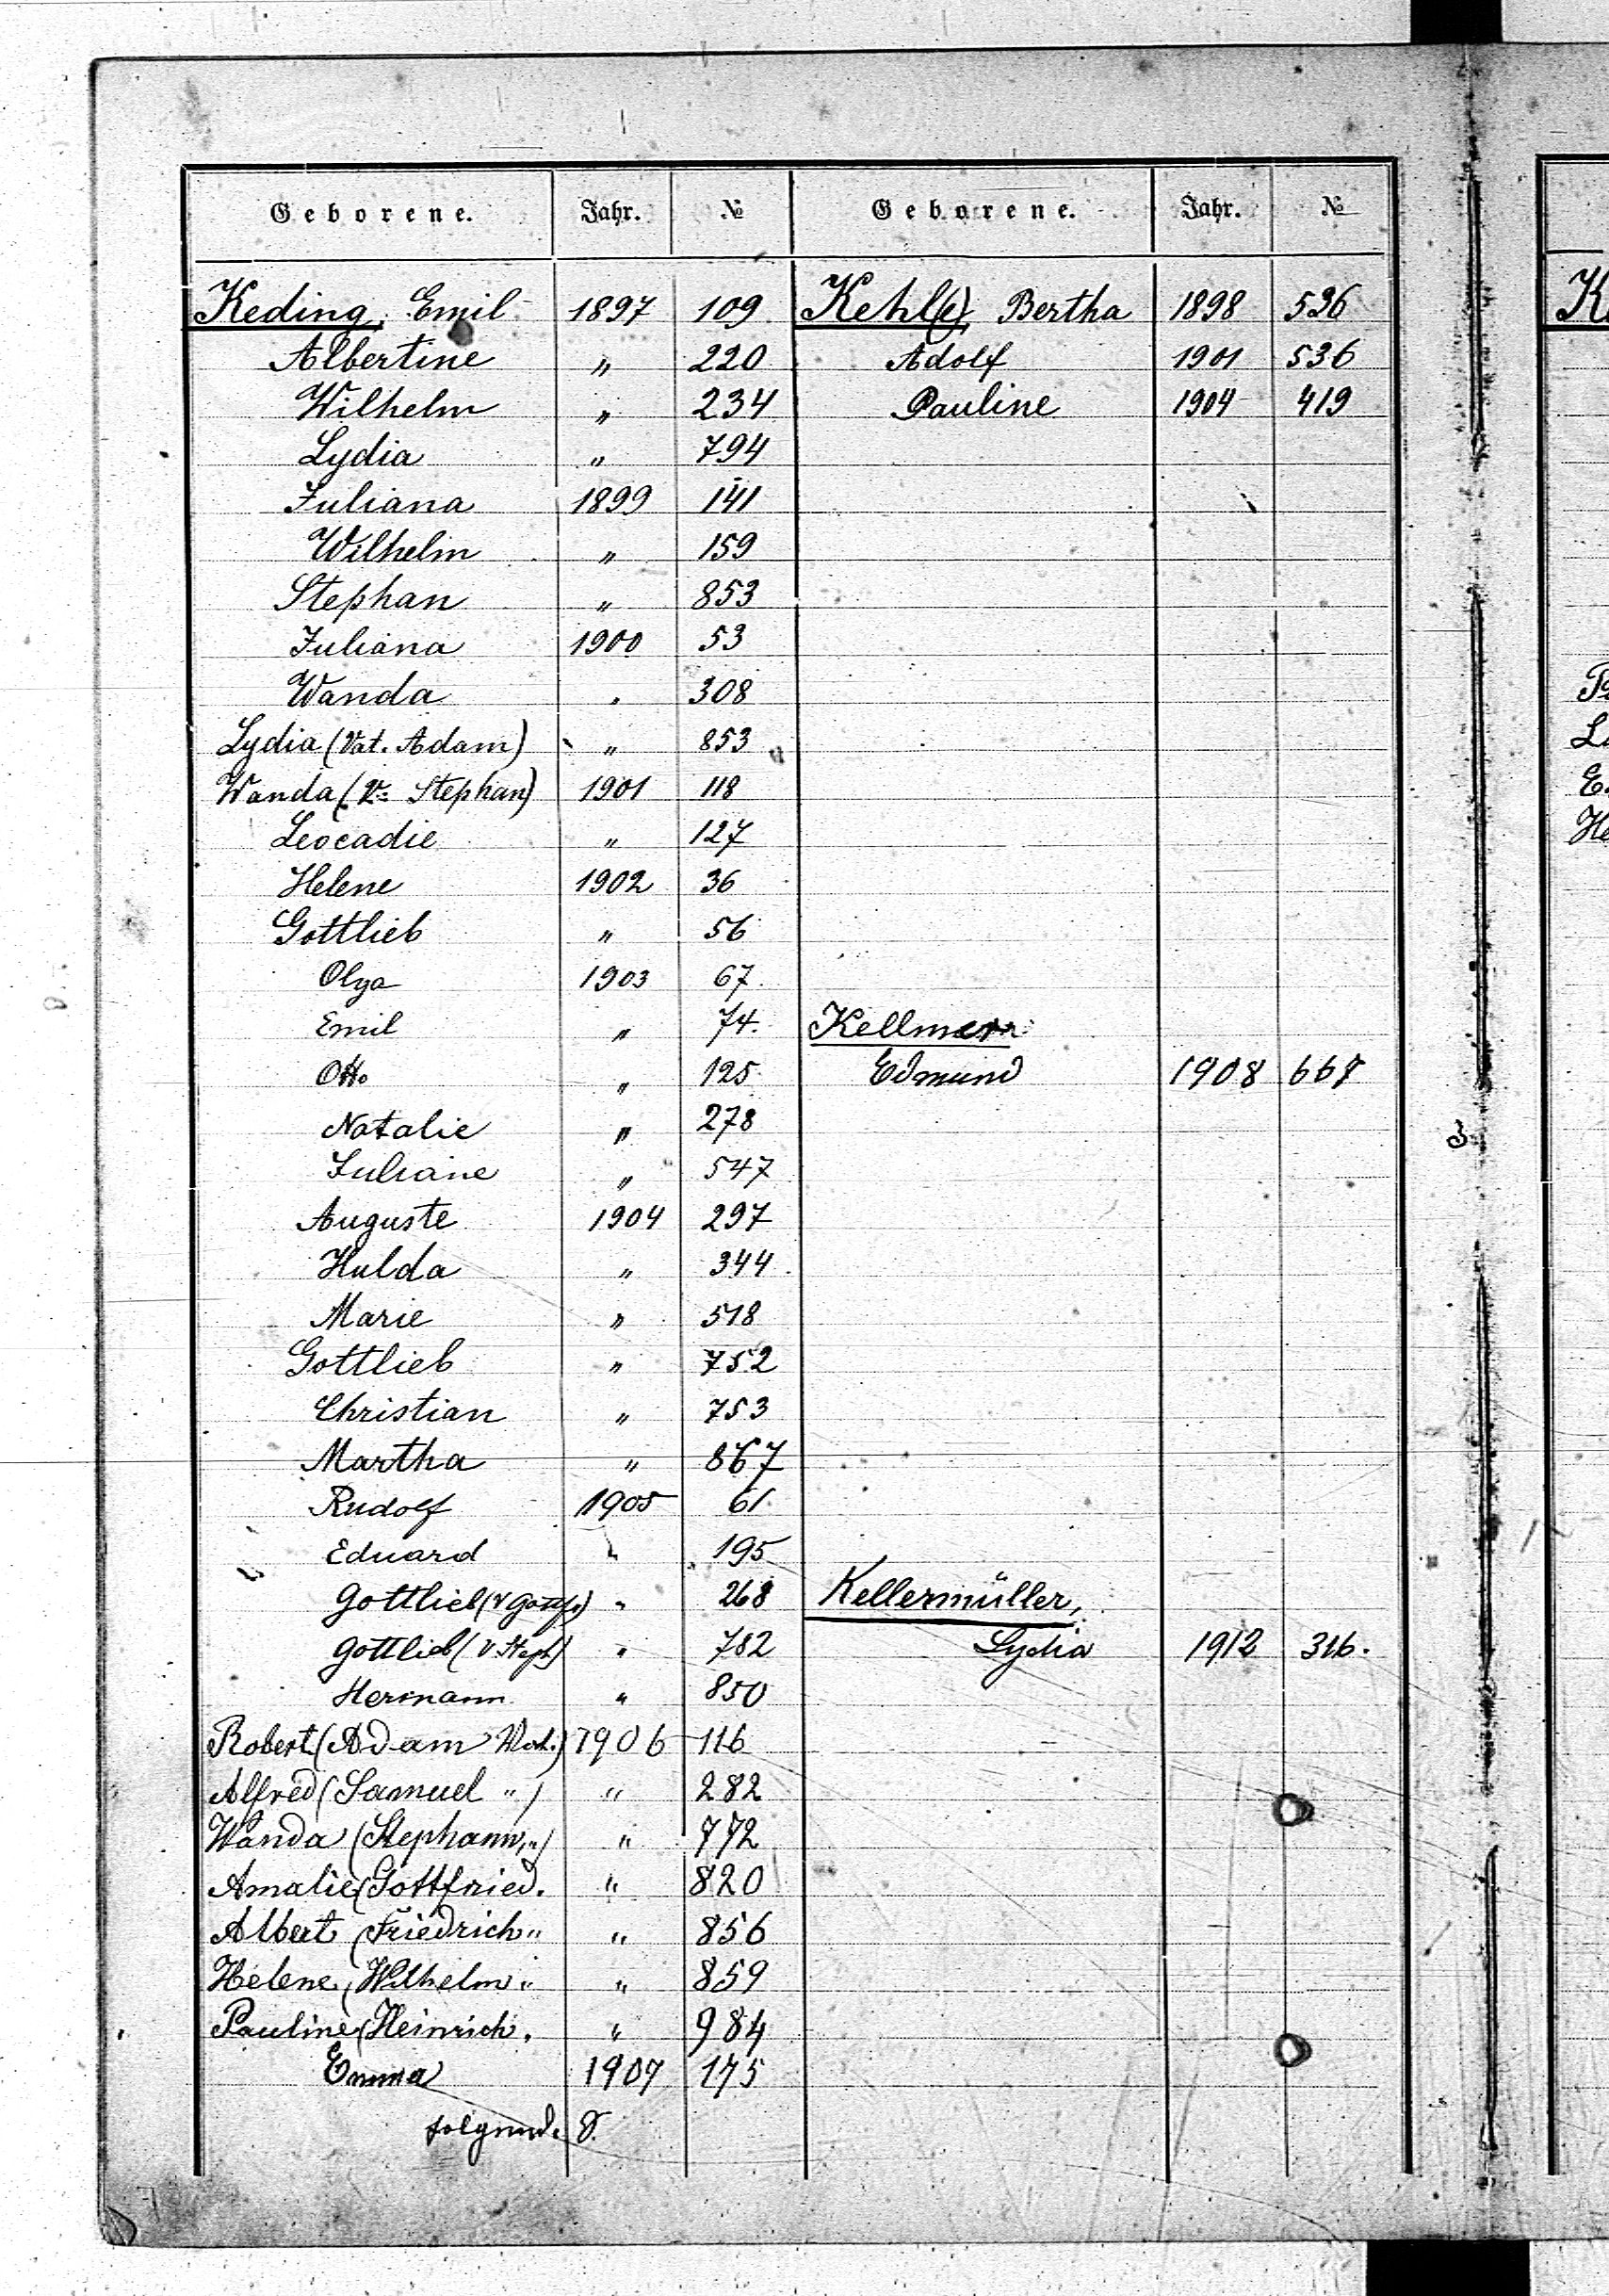 Geborene. Jahr. №
Keding, Emil 1897 109
Albertine " 220
Wilhelm " 234
Lydia " 794
Juliana 1899 141
Wilhelm " 159
Stephan " 853
Juliana 1900 53
Wanda " 308
Lydia (Vat. Adam) " 853
Wanda (V: Stephan) 1901 118
Leocadie " 127
Helene 1902 36
Gottlieb " 56
Olga 1903 67.
Emil " 74.
Otto " 125
Natalie " 278
Juliane " 547
Auguste 1904 297
Hulda " 344
Marie " 518
Gottlieb " 752
Christian " 753
Martha " 867
Rudolf 1905 61
Eduard " 195
Gottlieb (V " 268
Gottlieb (V. Steph) " 782
Hermann " 850
Robert (Adam Vat.) 1906 116
Alfred (Samuel ") " 282
Wanda (Stephann,") " 772
Amalie (Gottfried. " 820
Albert (Friedrich " " 856
Helene (Wilhelm " " 859
Pauline (Heinrich, " 984
Emma 1907 175
folgend. S.
Geborene. Jahr. №
Kehl(e), Bertha 1898 526
Adolf 1901 536
Pauline 1904 419
Kellmer
Edmund 1908 667
Kellermüller,
Lydia 1912 316.